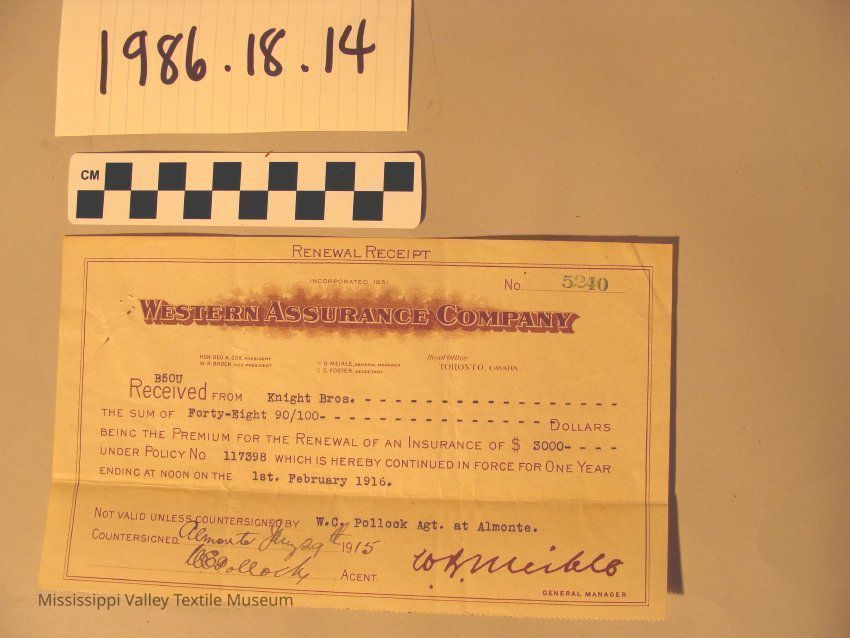 1986.18.14
CM
RENEWAL RECEIPT
INCORPORATED 1851
No. 5240
WESTERN ASSURANCE COMPANY
HON. GEO. A. COX, PRESIDENT
W. R. BROCK, VICE PRESIDENT
W. B. MEIKLE, GENERAL MANAGER
C. C. FOSTER, SECRETARY
Head Office,
TORONTO, CANADA.
B50U
Received FROM Knight Bros. - - - - - - - - - - - - - - - - - -
THE SUM OF Forty-Eight 90/100- - - - - - - - - - - - - - - - - DOLLARS
BEING THE PREMIUM FOR THE RENEWAL OF AN INSURANCE OF $ 3000- - - -
UNDER POLICY NO. 117398 WHICH IS HEREBY CONTINUED IN FORCE FOR ONE YEAR
ENDING AT NOON ON THE 1st. February 1916.
NOT VALID UNLESS COUNTERSIGNED BY W.C. Pollock Agt. at Almonte.
COUNTERSIGNED Almonte 29th 1915
Pollock AGENT
W. B. Meikle
GENERAL MANAGER
Mississippi Valley Textile Museum